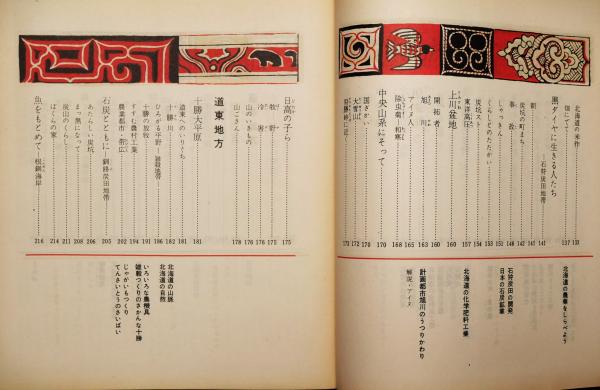 北海道の米作 137
畑にて 139
黒ダイヤに生きる人たち
―石狩炭田地帯 141
炭坑の町まち 142
事故 148
しゃっきん 149
くらしとのたたかい 151
炭坑スト 153
東洋高圧 154
上川盆地 160
開拓者 160
旭川 163
アイヌ人 165
除虫菊・和寒 168
中央山系にそって 170
国ざかい 170
大雪山 172
北海道の農業をしらべよう
石狩炭田の開発
日本の石炭鉱業
北海道の化学肥料工業
計画都市旭川のうつりかわり
解説・アイヌ
日高の子ら 175
牧野 175
冷害 176
山のいきもの 176
山ごさん 178
道東地方
十勝大平原 181
道東へのいりぐち 181
十勝川 182
ひろがる平野―雑穀地帯 186
十勝の放牧 191
すすむ農村工業 194
農業都市・帯広 202
石炭とともに―釧路炭田地帯 205
あたらしい炭坑 206
まっ黒になって 208
炭山のくらし 211
ぼくらの家 214
魚をもとめて―根釧海岸 216
北海道の山脈
北海道の自然
いろいろな農機具
雑穀つくりのさかんな十勝
じゃがいもつくり
てんさいとうのさいばい